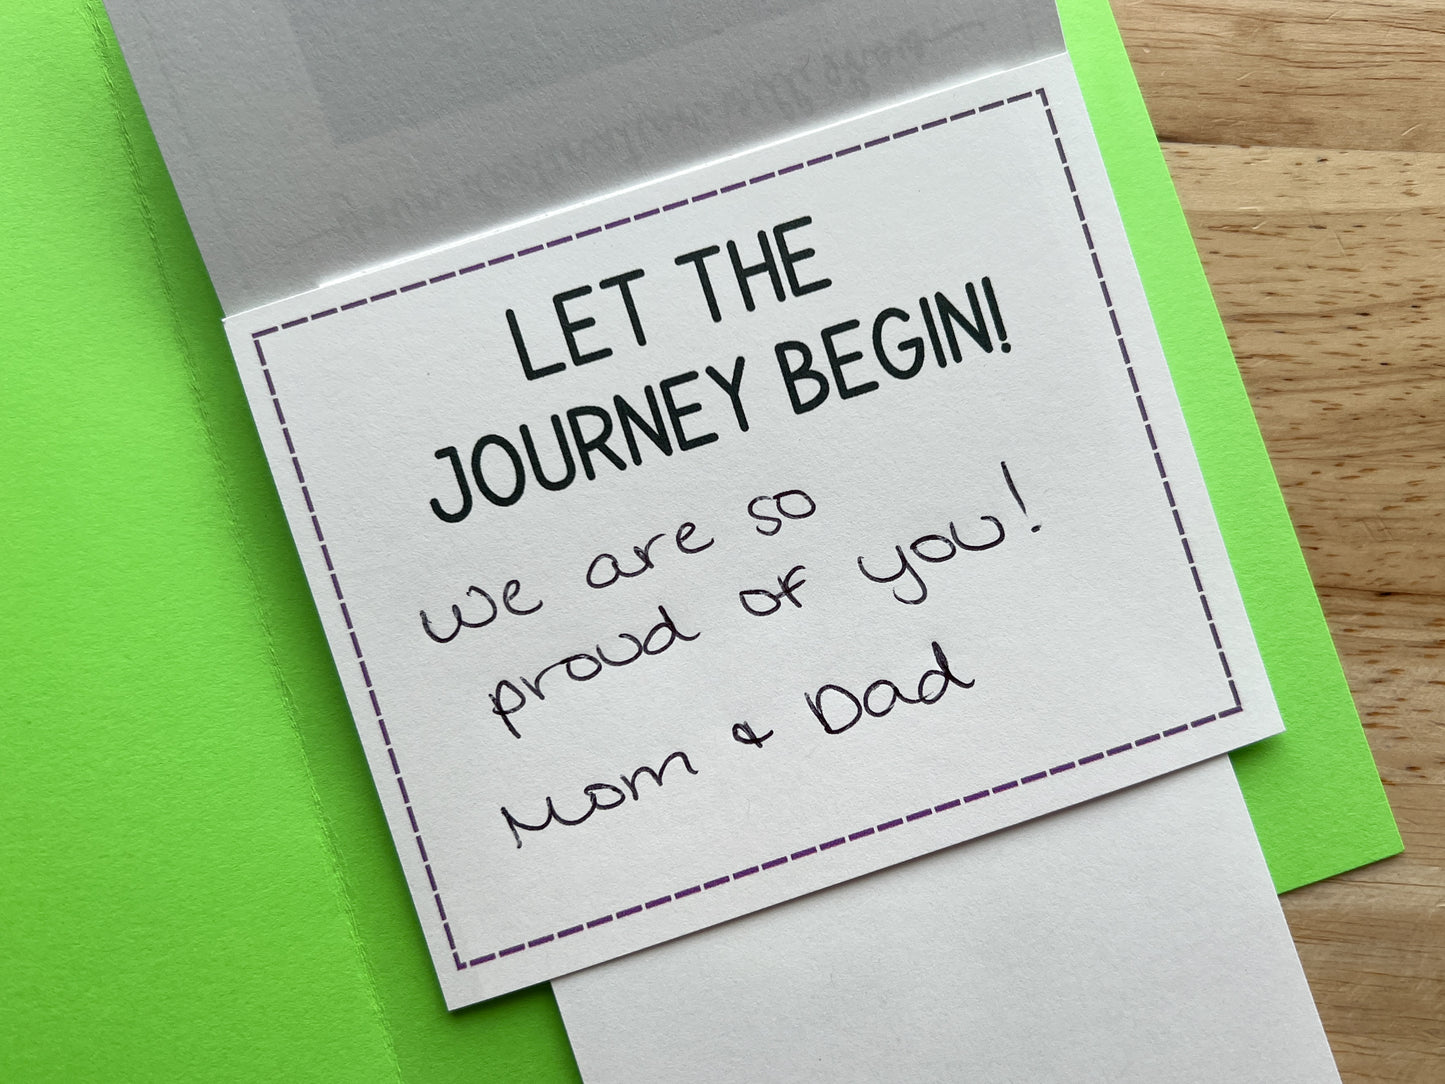 LET THE
JOURNEY BEGIN!
We are so
proud of you!
Mom & Dad